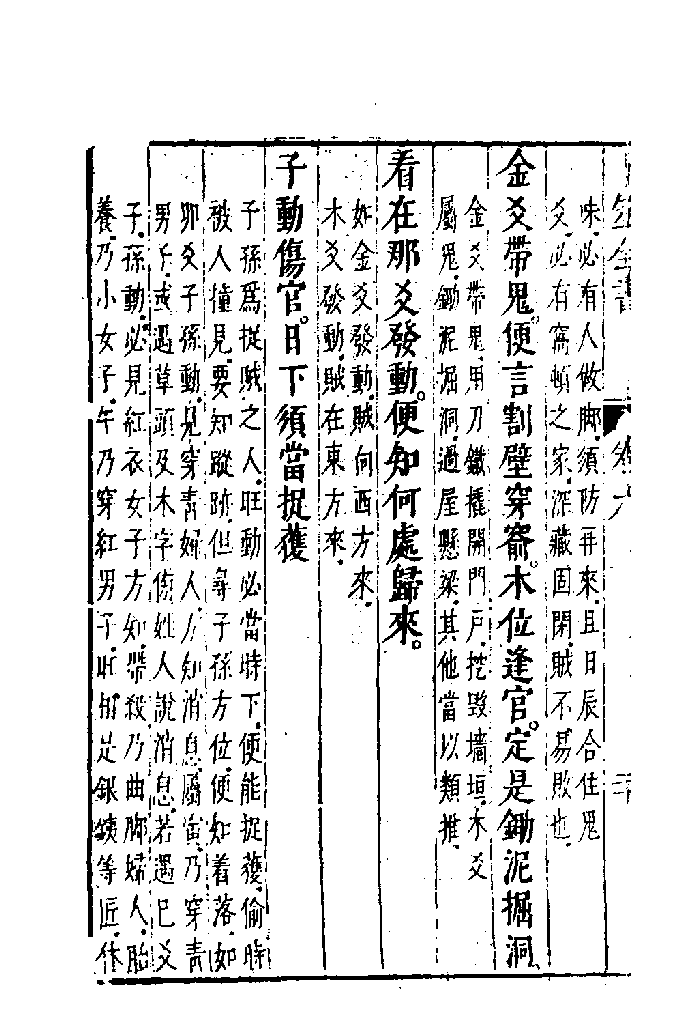 筮全書
味必有人做脚須防再來且日辰合住鬼
爻必有窩頓之家深藏固閉賊不易敗也
金爻帶鬼便言割壁穿窬木位逢官定是鋤泥掘洞
金爻帶鬼用刀鐵撬開門戶挖毀墻垣木爻
屬鬼鋤泥掘洞過屋懸梁其他當以類推
看在那爻發動便知何處歸來
如金爻發動賊向西方來
木爻發動賊在東方來
子動傷官日下須當捉獲
子孫爲捉賊之人旺動必當時下便能捉獲偷時
被人撞見要知蹤跡但尋子孫方位便知着落如
卯爻子孫動見穿青婦人方知消息屬寅乃穿青
男子或遇草頭及木字傍姓人說消息若遇巳爻
子孫動必見紅衣女子方知帶殺乃曲脚婦人胎
養乃小女子午乃穿紅男子旺相是銀銕等匠休